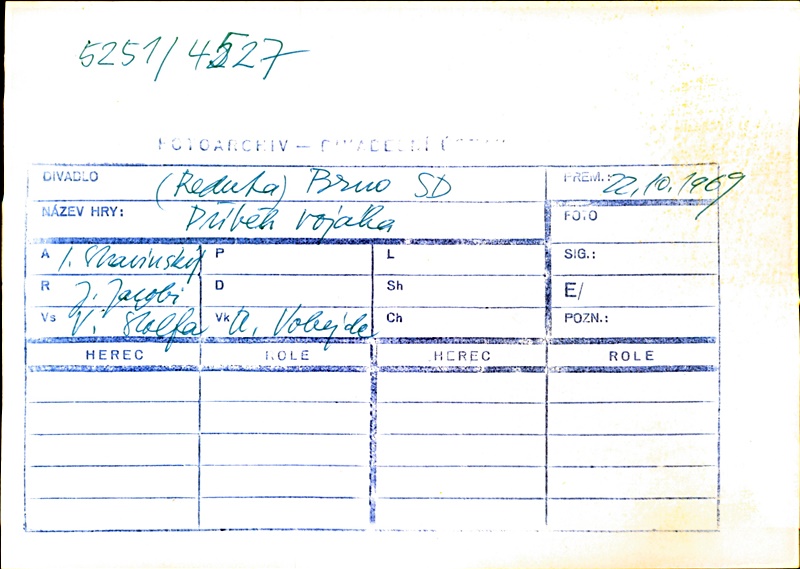 5251/4527
FOTOARCHIV — DIVADELNÍ ÚSTAV
DIVADLO (Reduta) Brno SD PREM.: 22.10.1969
NÁZEV HRY: Příběh vojáka FOTO
A I. Stravinskij P L SIG.:
R J. Jacobi D Sh E/
Vs V. Štolfa Vk A. Vobejda Ch POZN.:
HEREC ROLE HEREC ROLE